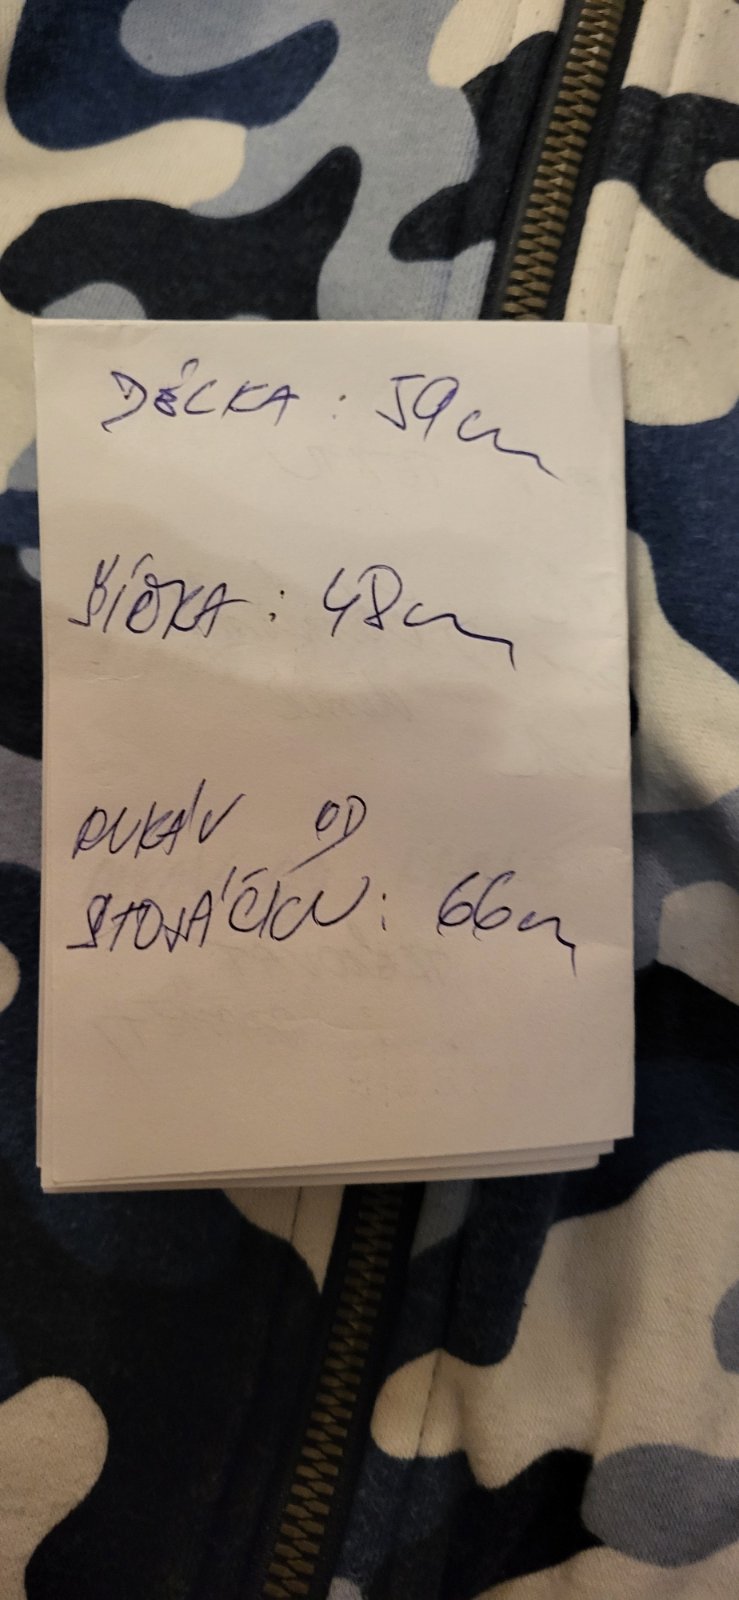 DÉCKA: 59cm
ŠÍŘKA: 48cm
RUKÁV OD
STOJÁČKU: 66cm